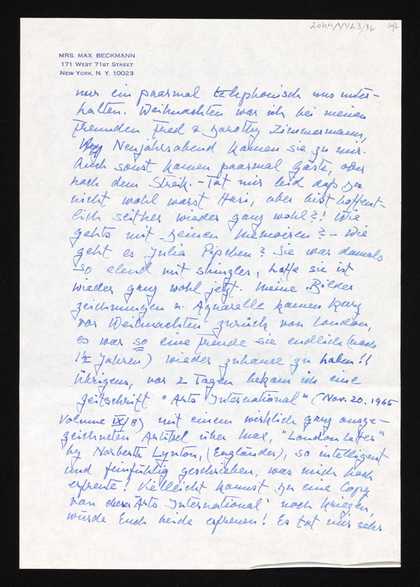 MRS. MAX BECKMANN
171 WEST 71ST STREET
NEW YORK, N. Y. 10023
nur ein paarmal telephonisch uns unter-
halten. Weihnachten war ich bei meinen
Freunden Fred & Dorothy Zimmermann,
Neujahrsabend kamen sie zu mir.
Auch sonst kamen paarmal Gäste, aber
nach dem Streik. - Tat mir leid dass Du
nicht wohl warst Heri, aber bist hoffent-
lich seither wieder ganz wohl?! Wie
gehts mit Deinen Memoiren? - Wie
geht es Julia Pipchen? Sie war damals
so elend mit shingles, hoffe sie ist
wieder ganz wohl jetzt. Meine Bilder
zeichnungen u. Aquarelle kamen kurz
vor Weihnachten zurück von London,
es war so eine freude sie endlich (nach
1½ Jahren) wieder zuhause zu haben!!
Übrigens, vor 2 Tagen bekam ich eine
Zeitschrift "Arts International" (Nov. 20. 1965
Volume IX/8) mit einem wirklich ganz ausge-
zeichneten Artikel über Max, "London Letter"
by Norbert Lynton, (Engländer), so intelligent
und feinfühlig geschrieben, was mich hoch
erfreute! Vielleicht kannst Du eine Copy
von dieser Arts International! noch kriegen,
würde Euch beide erfreuen! Es tat mir sehr